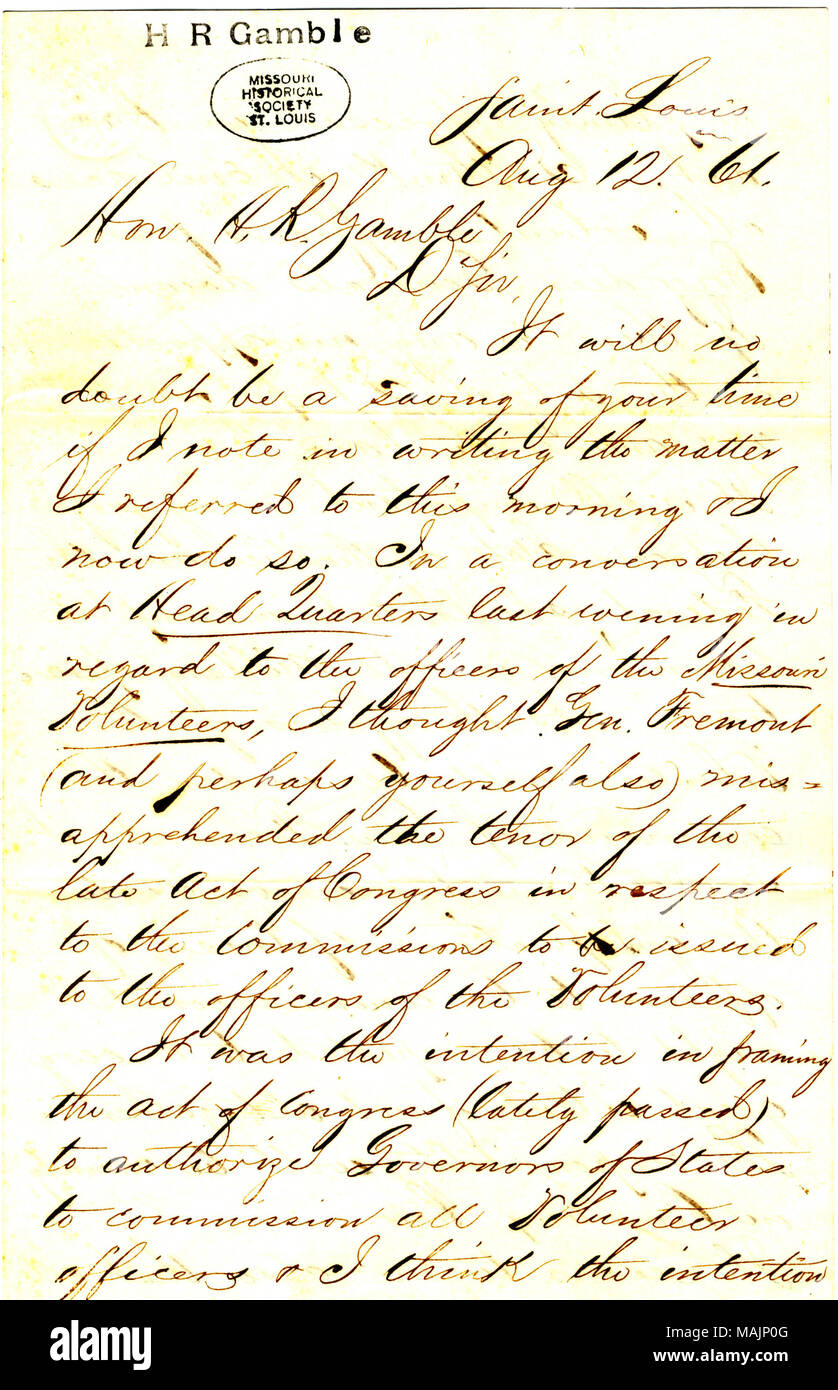 H R Gamble
MISSOURI
HISTORICAL
SOCIETY
ST. LOUIS
Saint. Louis
Aug 12. 61.
Hon. H. R. Gamble
D Sir,
It will no
doubt be a saving of your time
if I note in writing the matter
I referred to this morning & I
now do so. In a conversation
at Head Quarters last evening in
regard to the officers of the Missouri
Volunteers, I thought Gen. Fremont
(and perhaps yourself also) mis=
apprehended the tenor of the
late Act of Congress in respect
to the Commissions to be issued
to the officers of the Volunteers.
It was the intention in framing
the act of Congress (lately passed)
to authorize Governors of States
to commission all Volunteer
officers & I think the intention
alamy
Image ID: MAJP0G
www.alamy.com